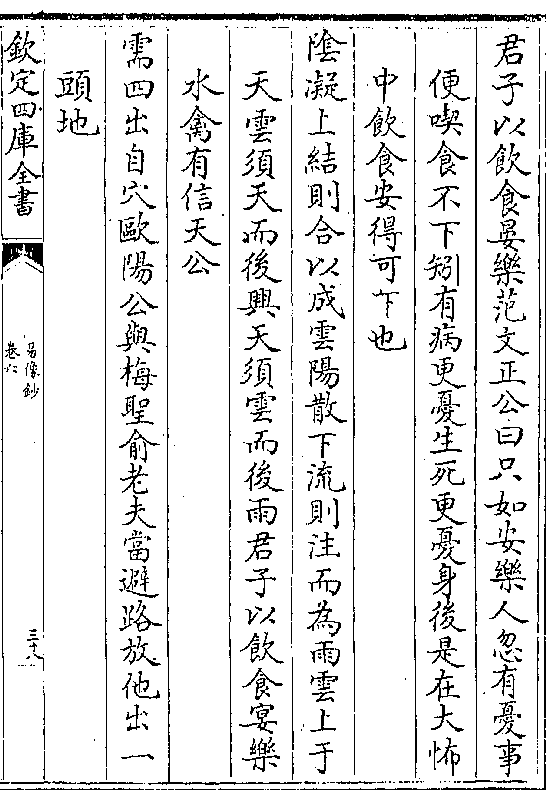 君子以飲食晏樂范文正公曰只如安樂人忽有憂事
便喫食不下矧有病更憂生死更憂身後是在大怖
中飲食安得可下也
陰凝上結則合以成雲陽散下流則注而為雨雲上于
天雲須天而後興天須雲而後雨君子以飲食宴樂
水禽有信天公
需四出自穴歐陽公與梅聖俞老夫當避路放他出一
頭地
欽定四庫全書
易像鈔
卷六
三十八